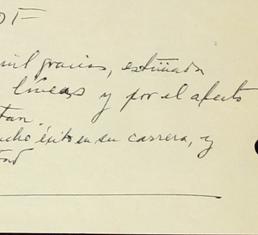 mil gracias, estimada
líneas y por el afecto
tan.
mucho éxito en su carrera, y